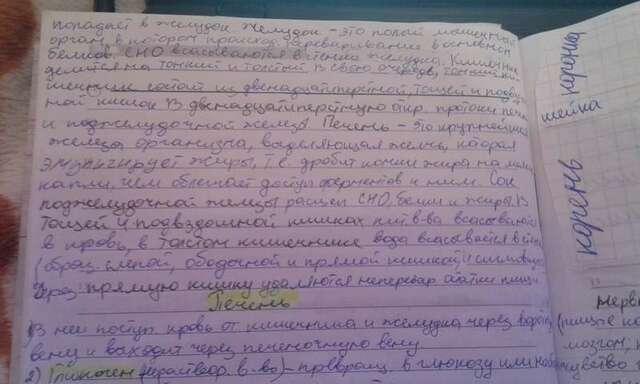 попадает в желудок. Желудок - это полый мышечный
орган, в котором происход. переваривание в основном
белков. CHO всасываются в стенки желудка. Кишечник
делится на тонкий и толстый. В свою очередь, тонкий ки-
шечник состоит из двенадцатиперстной, тощей и подвз
ной кишок. В двенадцатиперстную откр. протоки
и поджелудочной железы. Печень - это крупнейшая
железа организма, выделяющая желчь, которая
эмульгирует жиры, т.е. дробит капли жира на мелк
капли, чем облегчает доступ ферментов к ним. Сок
поджелудочной железы расщеп CHO, белки и жиры. В
тощей и подвздошной кишках пит. в-ва всасываются
в кровь, в толстом кишечнике вода всасывается в
(образ. слепой, ободочной и прямой кишкой)
Через прямую кишку удаляются неперевар остатки пищи
Печень
1) В нее поступ. кровь от кишечника и желудка через
вену и выходит через печеночную вену
2) Гликоген (нераствор. в-во) - превращ. в глюкозу или
коронка
шейка
корень
нерв
(пищ
мозгом,
чувство